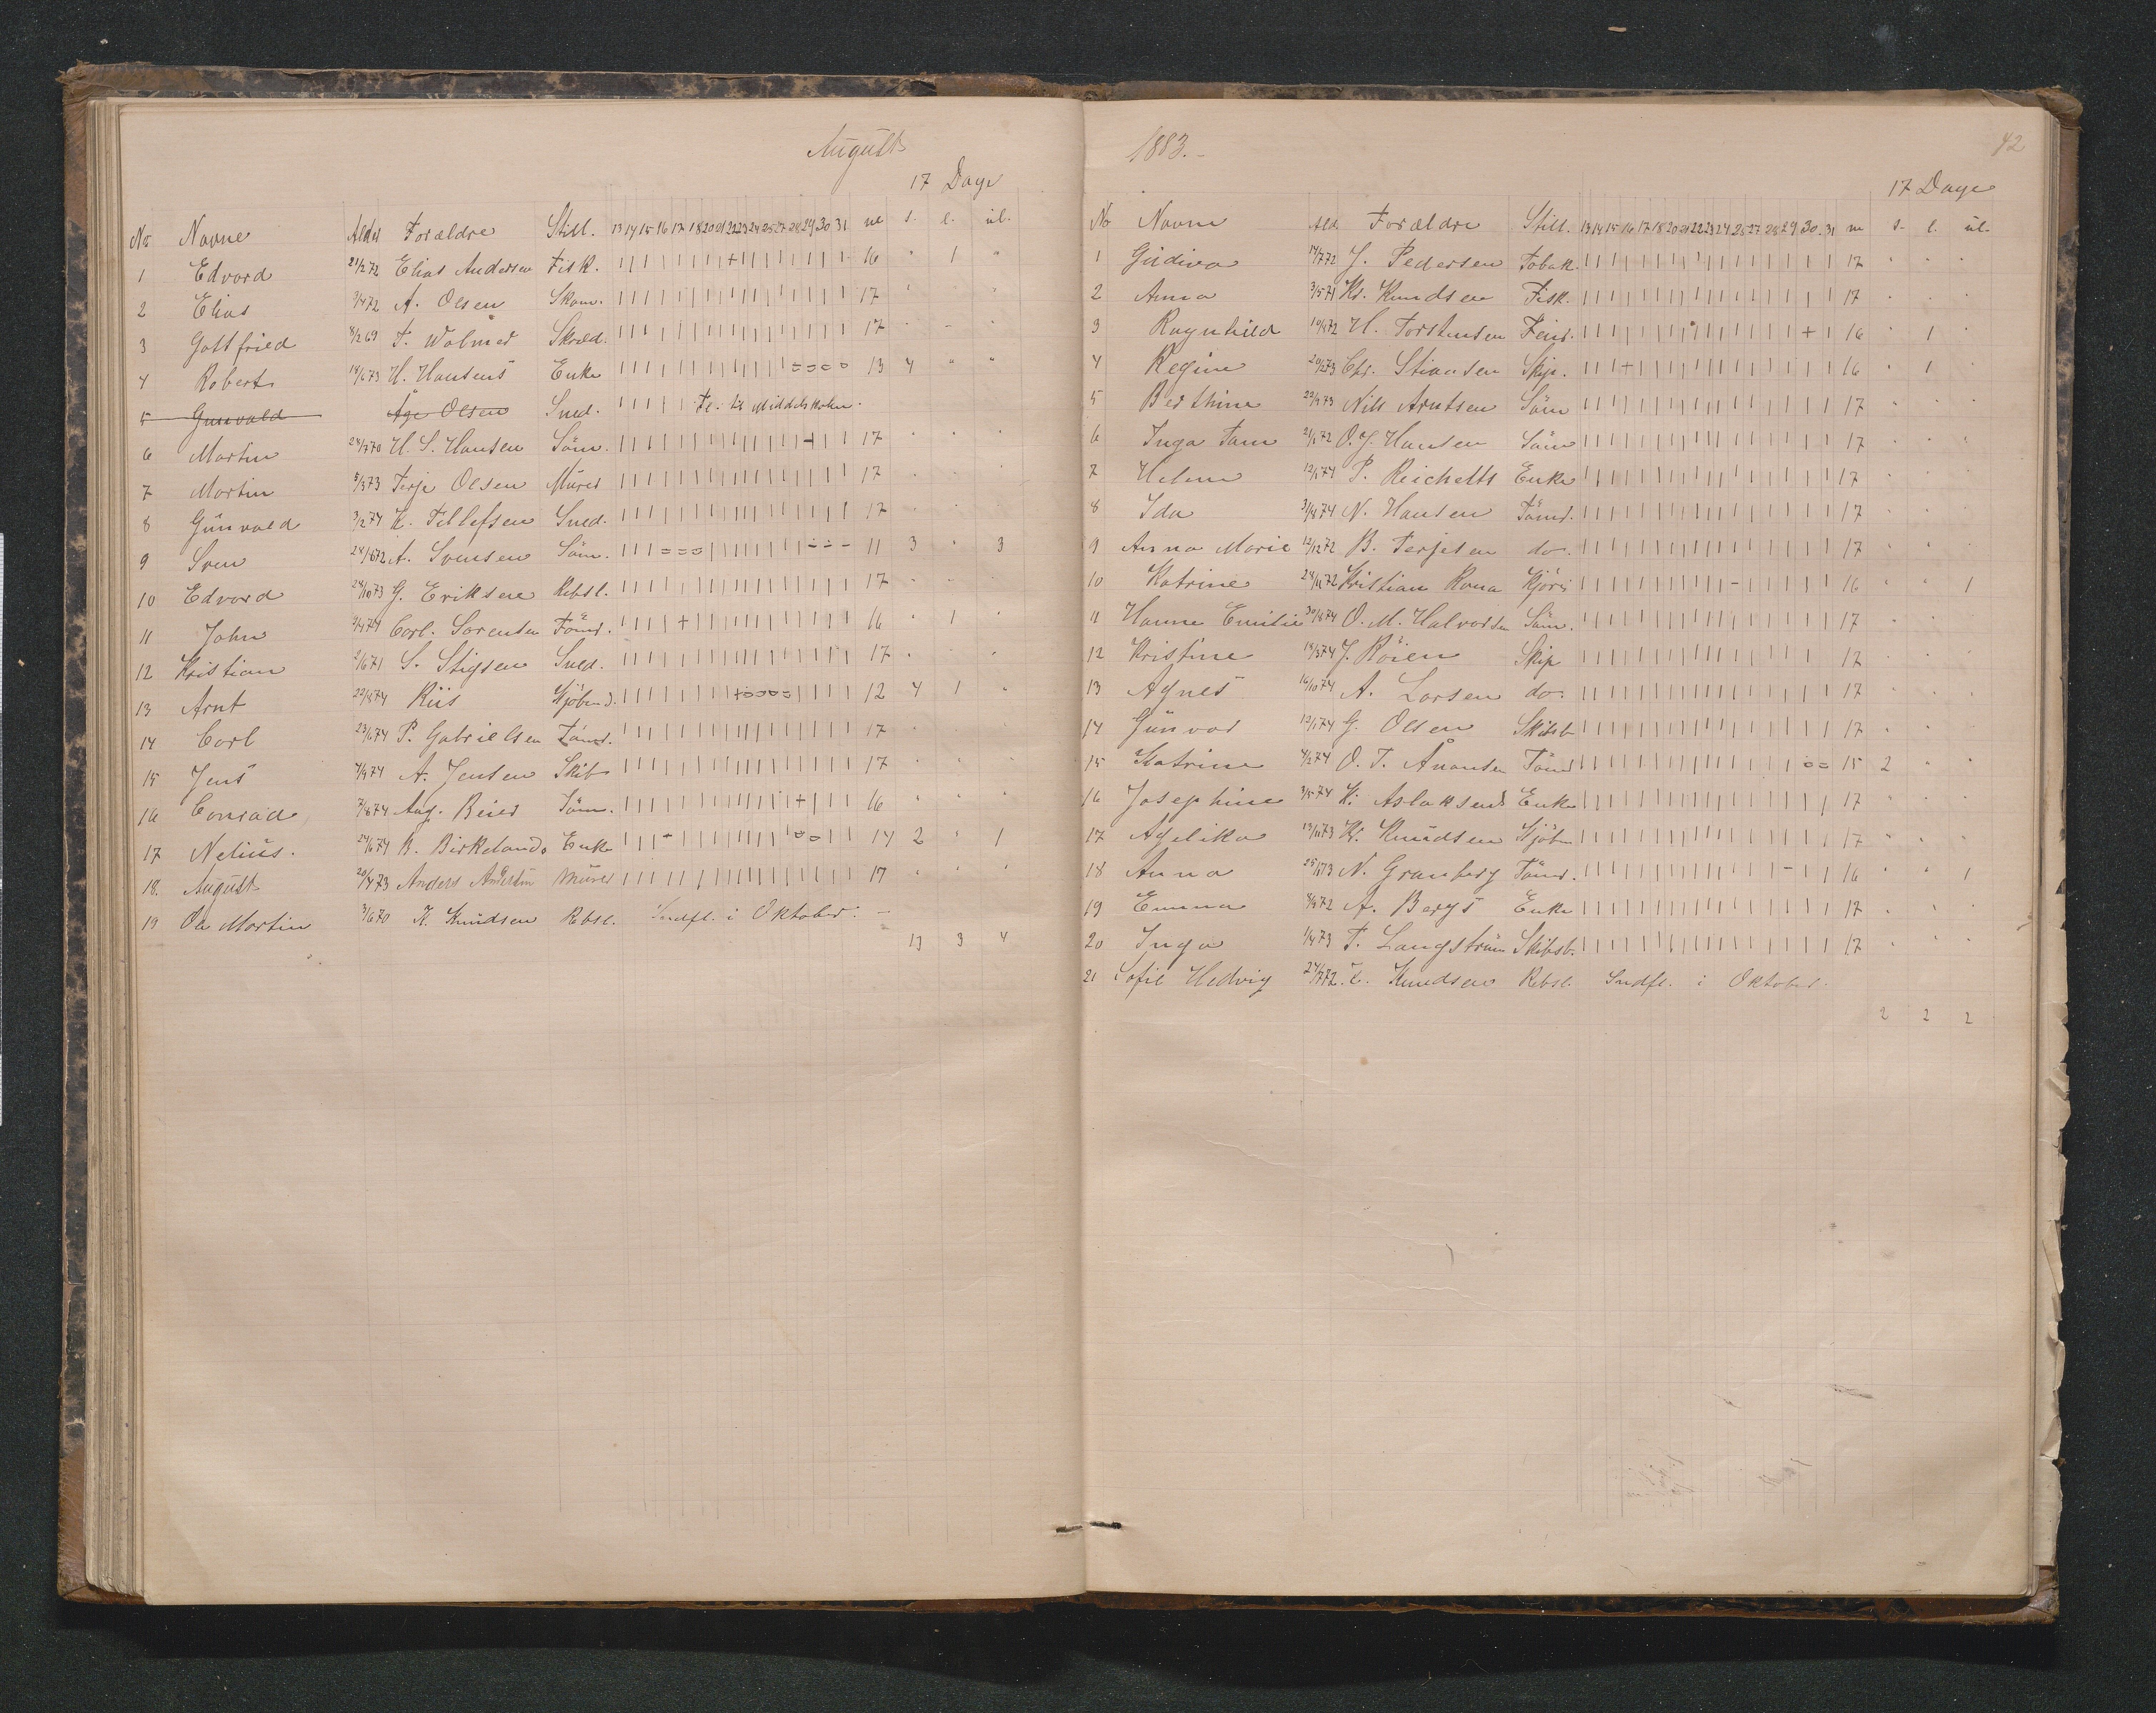 August
17 Dage
No Navne Alder Forældre Still. 13 14 15 16 17 18 20 21 22 23 24 25 27 28 29 30 31 m s. l. ul.
1 Edvard 21/2 72 Elias Andersen Fisk. | | | | | | | | + | | | | | | | | 16 " 1 "
2 Elias 3/4 72 A. Olsen Skom. | | | | | | | | | | | | | | | | | 17 " " "
3 Gottfried 8/2 69 T. Wolmer Skræd. | | | | | | | | | | | | | | | | | 17 " - "
4 Robert 14/6 73 H. Hansens Enke | | | | | | | | | | | | | 13 4 " "
5 Gunvald Åge Olsen Sned. | | | | | Fl. til Middelskolen.
6 Martin 28/7 70 H. S. Hansen Söm. 17 " " "
7 Martin 5/3 73 Terje Olsen Murer 17 " " "
8 Gunvald 3/2 74 K. Tellefsen Sned. 17 " " "
9 Sven 28/6 72 A. Svensen Söm. 11 3 " 3
10 Edvard 28/10 73 G. Eriksen Rebsl. 17 " " "
11 John Carl. Sorensen Tömr. 16 " 1 "
12 Kristian 2/6 71 S. Stigsen Sned. 17 " " "
13 Arnt Riis Kjöbmd. 12 4 1 "
14 Carl 23/6 74 P. Gabrielsen Tömr. 17 "
15 Jens 4/9 74 A. Jensen Skib 17 " " "
16 Conrad 7/8 74 Aug. Beier Söm. 16 " " "
17 Nelius. 24/6 74 B. Birkelands Enke 14 2 " 1
18. August 20/4 73 Anders Murer 17 " " "
19 Ole Martin 3/6 70 K. Knudsen Rebsl. Indfl. i Oktober. -
13 3 4
1883.-
42
17 Dage
No Navne Ald. Forældre Still. 13 14 15 16 17 18 20 21 22 23 24 25 27 28 29 30 31 m s. l. ul.
1 Gudiva 14/7 72 J. Pedersen Tobak. 17 " " "
2 Anna 3/5 71 Kr. Knudsen Fisk. 17 " " "
3 Ragnhild H. Torstensen 16 " 1 "
4 Regine Chr. Stiansen Skip. 16 " 1 "
5 Berthine 22/9 73 Nils Arntsen Söm 17 " " "
6 Inga Tam 2/6 72 O. J. Hansen Söm 17 " " "
7 Helene 12/1 74 P. Reichelts Enke 17 " " "
8 Ida N. Hansen Tömr. 17 " " "
9 Anna Marie 12/12 72 B. Terjesen do. 17 " " "
10 Katrine Kristian Rona Kjöri 16 " " 1
11 Hanne Emilie O. M. Halvorsen Söm. 17 " " "
12 Kristine 18/3 74 J. Röien Skip 17 " " "
13 Agnes 16/10 74 A. Larsen do. 17 " " "
14 Gunvor 12/1 74 G. Olsen Skibsb. 17 " " "
15 Katrine 4/2 74 O. T. Ånonsen Tömr. 15 2 " "
16 Josephine 3/5 74 K. Aslaksens Enke 17 " " "
17 Agelika 13/11 73 Kr. Knudsen Kjöbm 17 " " "
18 Anna N. Granberg Tömr. 16 " " 1
19 Emma 4/9 72 A. Bergs Enke 17 " " "
20 Inga 1/4 73 T. Langström Skibsb. 17 " " "
21 Sofie Hedvig 27/7 72 K. Knudsen Rebsl. Indfl. i Oktober.
2 2 2